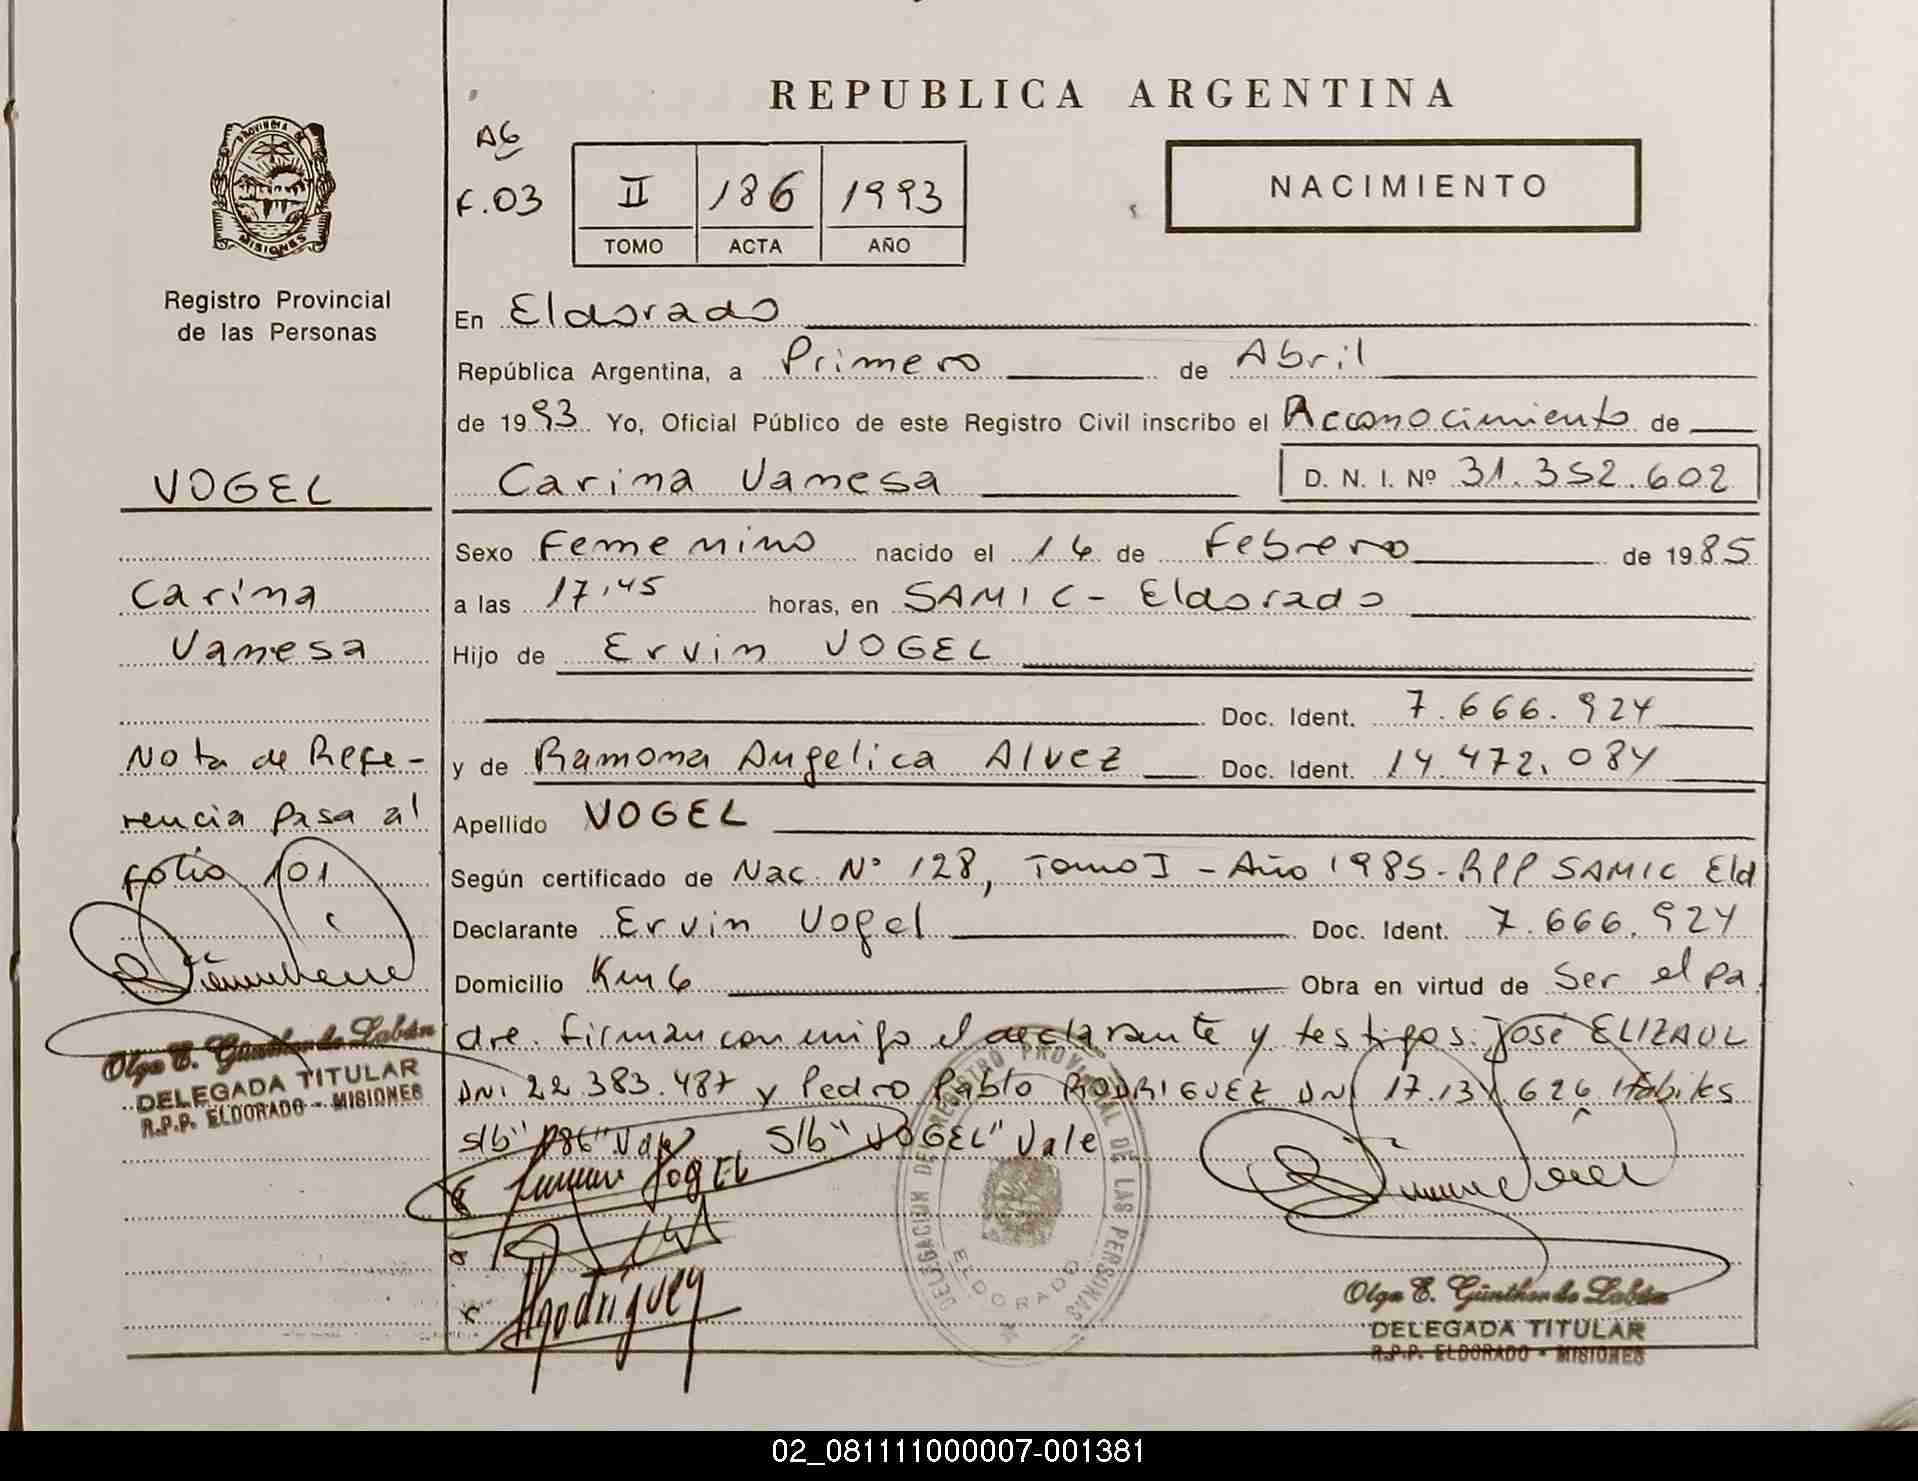 REPUBLICA ARGENTINA
PROVINCIA DE
MISIONES
Registro Provincial
de las Personas
A6
F.03
II 186 1993
TOMO ACTA AÑO
NACIMIENTO
En Eldorado
República Argentina, a Primero de Abril
de 1993 Yo, Oficial Público de este Registro Civil inscribo el Reconocimiento de
Carina Vanesa D. N. I. Nº 31.352.602
Sexo Femenino nacido el 16 de Febrero de 1985
a las 17,45 horas, en SAMIC - Eldorado
Hijo de Ervin VOGEL
Doc. Ident. 7.666.924
y de Ramona Angelica Alvez Doc. Ident. 14.472.084
Apellido VOGEL
Según certificado de Nac. Nº 128, Tomo I - Año 1985 - RPP SAMIC Eld
Declarante Ervin Vogel Doc. Ident. 7.666.924
Domicilio Km 6 Obra en virtud de Ser el pa
dre. Firman conmigo el declarante y testigos: José ELIZAUL
DNI 22.383.487 y Pedro Pablo RODRIGUEZ DNI 17.13 626 Habiles
S/b "186" Vale S/b "VOGEL" Vale
VOGEL
Rodriguez
VOGEL
Carina
Vanesa
Nota de Refe-
rencia pasa al
folio 101
Olga E. Günther de Labán
DELEGADA TITULAR
R.P.P. ELDORADO - MISIONES
DELEGACION DE REGISTRO PROVINCIAL DE LAS PERSONAS
ELDORADO
Olga E. Günther de Labán
DELEGADA TITULAR
R.P.P. ELDORADO - MISIONES
02_081111000007-001381